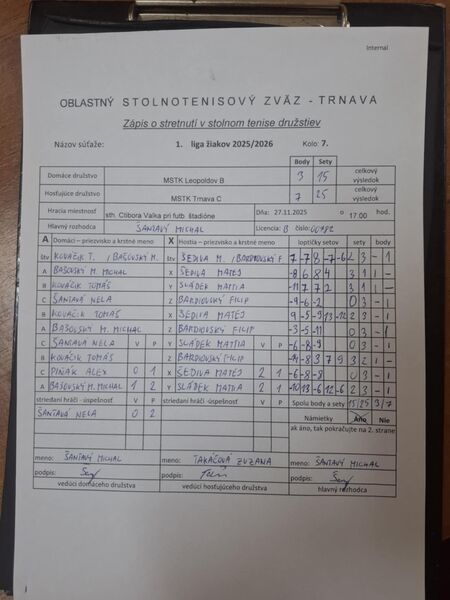 Internal
OBLASTNÝ STOLNOTENISOVÝ ZVÄZ - TRNAVA
Zápis o stretnutí v stolnom tenise družstiev
Názov súťaže: 1. liga žiakov 2025/2026 Kolo: 7.
Body Sety
Domáce družstvo MSTK Leopoldov B 3 15 celkový výsledok
Hosťujúce družstvo MSTK Trnava C 7 25 celkový výsledok
Hracia miestnosť sth. Ctibora Valka pri futb. štadióne Dňa: 27.11.2025 o 17.00 hod.
Hlavný rozhodca ŠANTAVÝ MICHAL Licencia: B číslo: 00982
A Domáci - priezvisko a krstné meno X Hostia - priezvisko a krstné meno loptičky setov sety body
štv KOVÁČIK T. / BAŠOVSKÝ M. štv ŠEDIVÁ M. / BARDIOVSKÝ F 7 -7 8 -7 -6 2 3 - 1
A BAŠOVSKÝ M. MICHAL X ŠEDIVA MATEJ -8 6 8 4 3 1 1 -
B KOVÁČIK TOMÁŠ Y SLÁDEK MATTIA -11 7 7 2 3 1 1 -
C ŠANTAVÁ NELA Z BARDIOVSKÝ FILIP -9 -6 -2 0 3 - 1
B KOVÁČIK TOMÁŠ X ŠEDIVA MATEJ 2 3 - 1
A BAŠOVSKÝ M. MICHAL Z BARDIOVSKÝ FILIP -3 -5 -11 0 3 - 1
C ŠANTAVÁ NELA V P Y SLÁDEK MATTIA V P -6 -8 -9 0 3 - 1
B KOVÁČIK TOMÁŠ Z BARDIOVSKÝ FILIP -4 -8 3 7 9 3 2 1 -
C PIŇÁK ALEX 0 1 X ŠEDIVA MATEJ 2 1 -6 -8 -8 0 3 - 1
A BAŠOVSKÝ M. MICHAL 1 2 Y SLÁDEK MATTIA 2 1 2 3 - 1
striedaní hráči -úspešnosť V P striedaní hráči - úspešnosť V P Spolu body a sety 15/25 3/7
ŠANTAVÁ NELA 0 2 Námietky Áno Nie
ak áno, tak pokračujte na 2. strane
meno: ŠANTAVÝ MICHAL meno: TAKÁČOVÁ ZUZANA meno: ŠANTAVÝ MICHAL
podpis: podpis: podpis:
vedúci domáceho družstva vedúci hosťujúceho družstva hlavný rozhodca